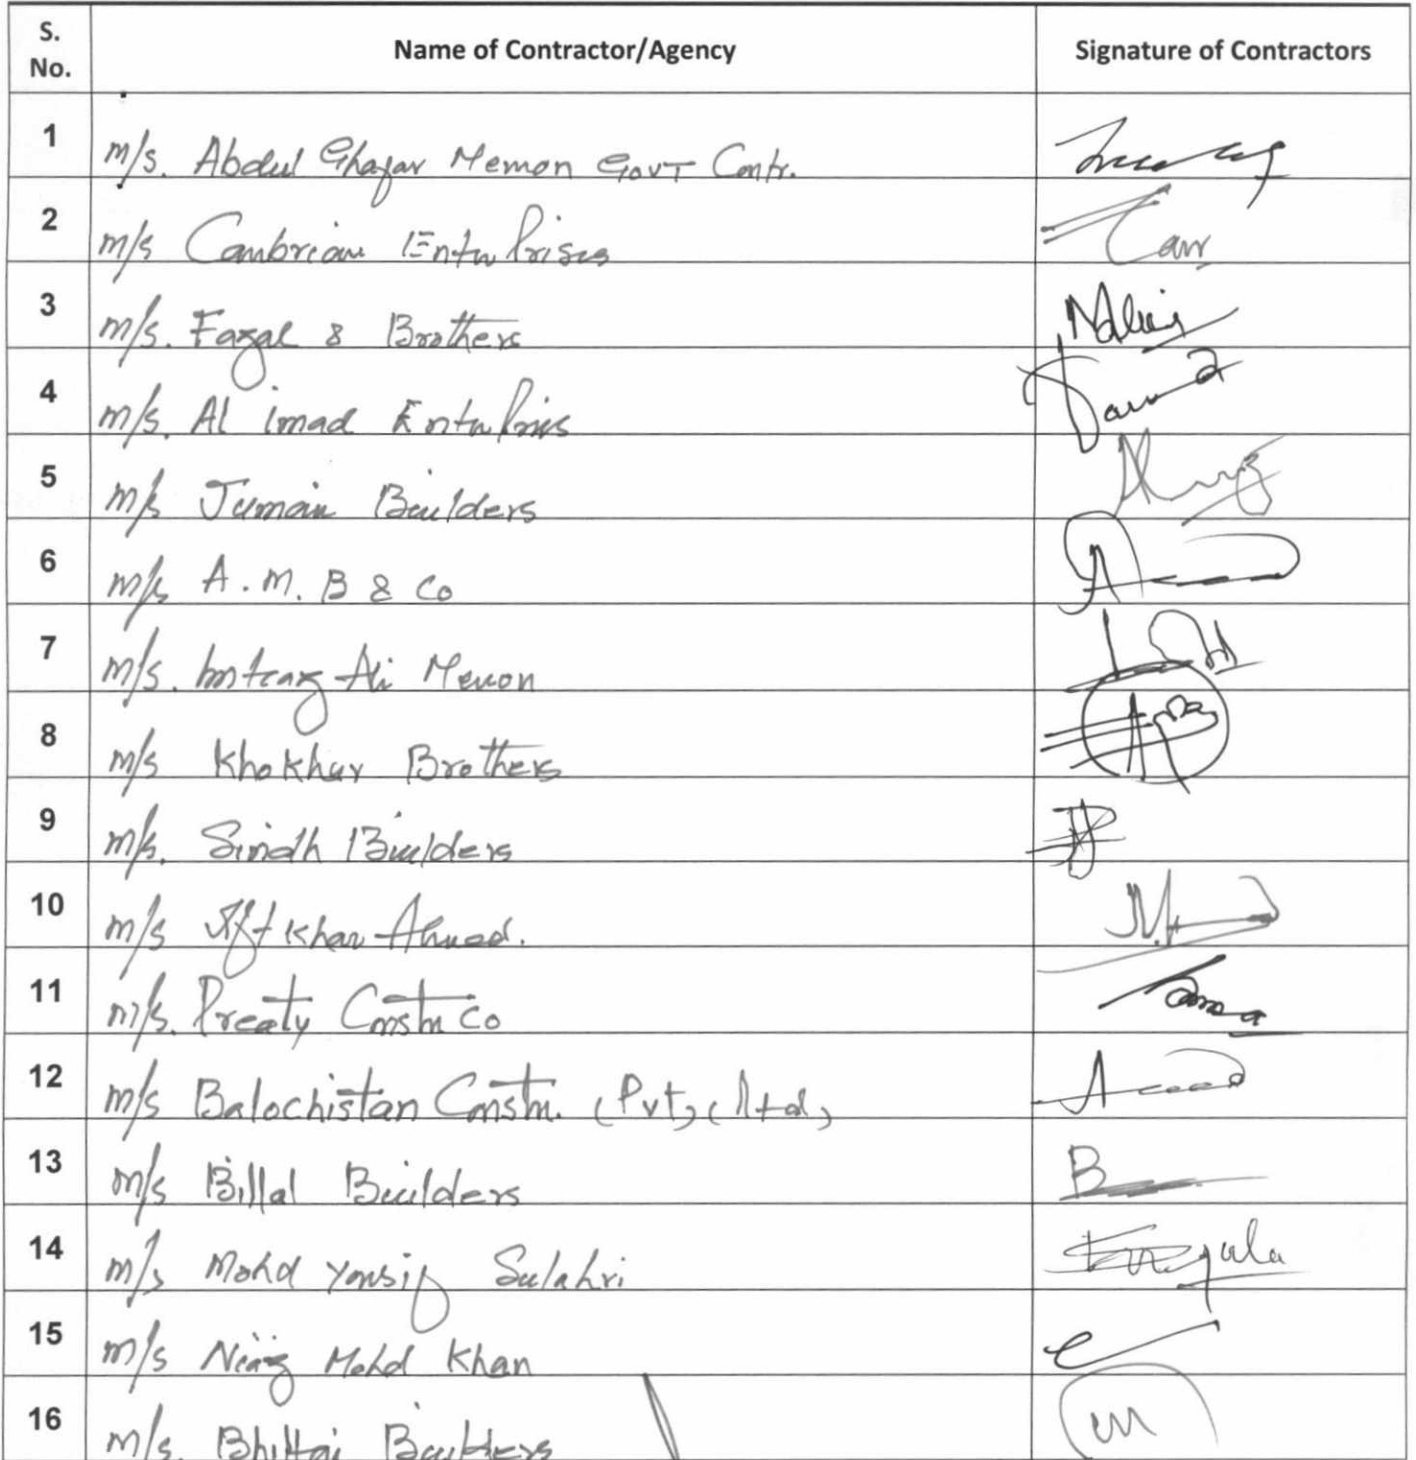 S. No. Name of Contractor/Agency Signature of Contractors
1 M/s. Abdul Ghafar Memon Govt Contr.
2 M/s Cambrian Enterprises
3 M/s. Fazal & Brothers
4 M/s. Al Imad Enterprises
5 M/s Juman Builders
6 M/s A.M.B & Co
7 M/s. Imteaz Ali Memon
8 M/s Khokhar Brothers
9 M/s. Sindh Builders
10 M/s Iftkhar Ahmed.
11 M/s. Preaty Constn Co
12 M/s Balochistan Constn. (Pvt) (Ltd)
13 M/s Billal Builders B
14 M/s Mohd Yousif Sulahri
15 M/s Niaz Mohd Khan
16 M/s. Bhittai Builders